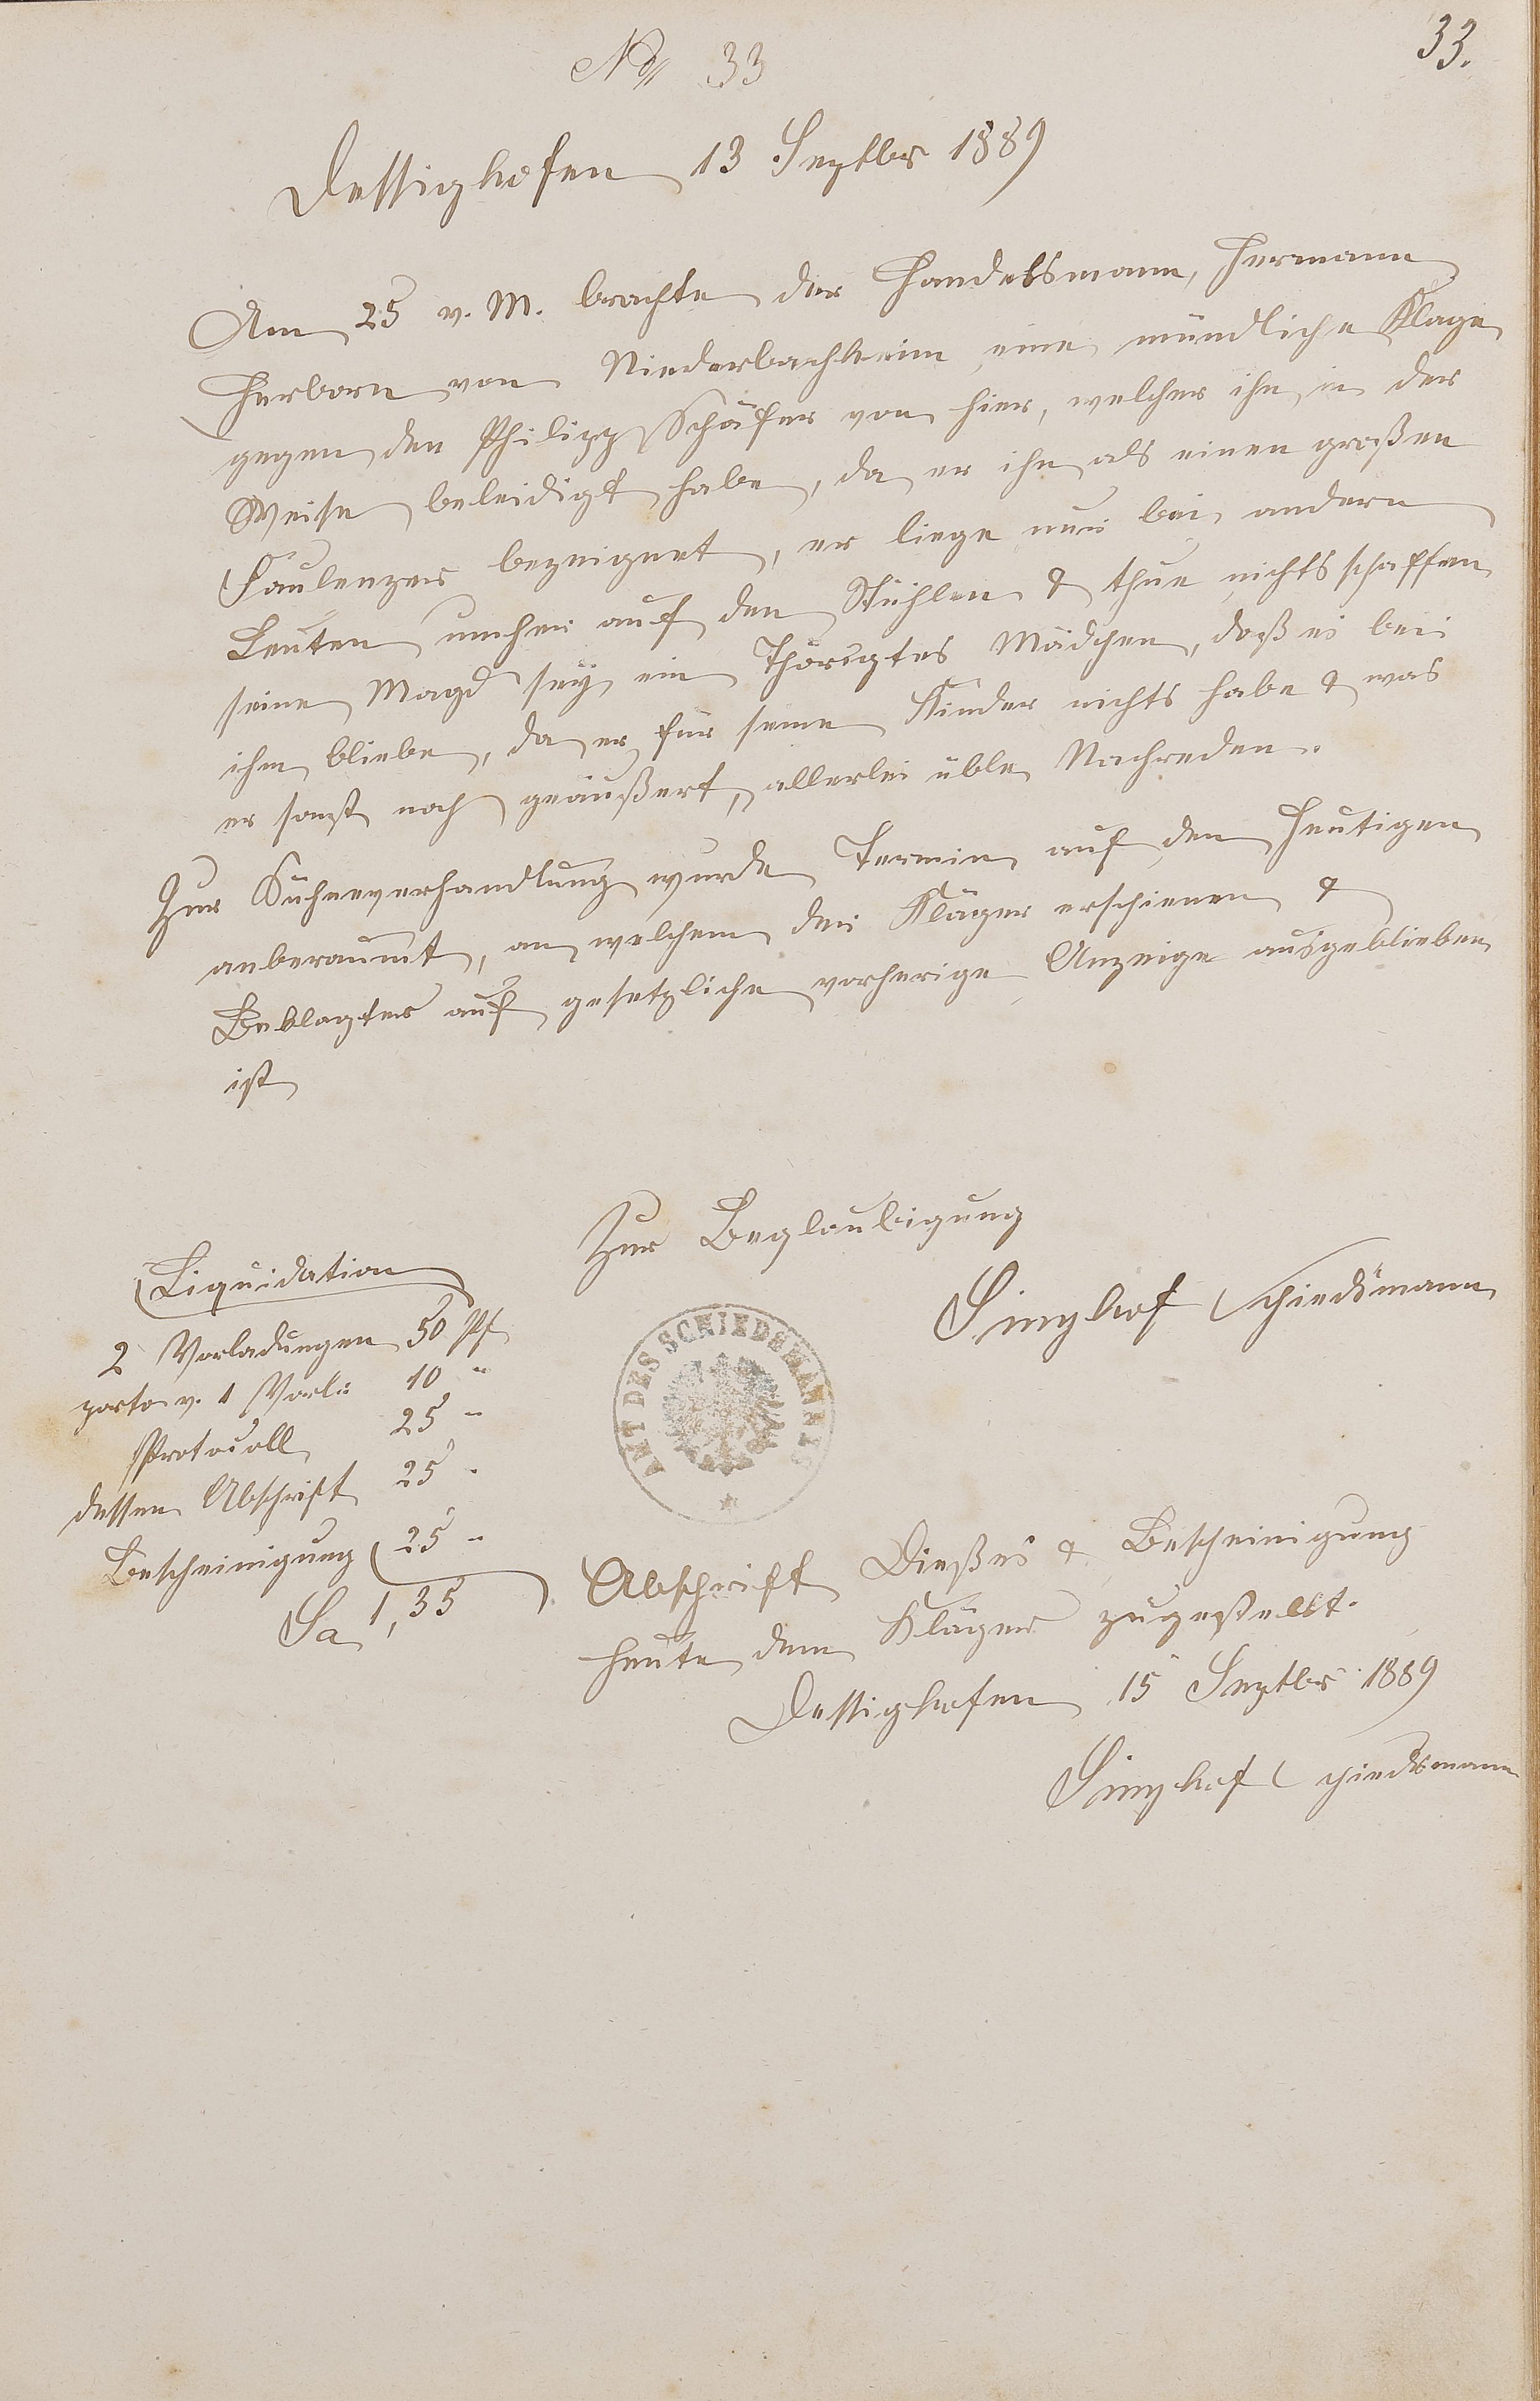 33.
No 33
Dessighofen 13 Septbr 1889
Am 25 v. M. brachte der Handelsmann, Hermann
Herborn von Niederbachheim eine mündliche Klage
gegen den Philipp Schäfer von hier, welcher ihn in der
Weise beleidigt habe, da er ihn als einen großen
Faulenzer bezeignet, er liege nur bei andern
Leuten umher auf den Stühlen & thue nichts schaffen
seine Magd sey ein Thörigtes Mädchen, daß es bei
ihm bliebe, da er für seine Kinder nichts habe & was
er sonst noch geäußert, allerlei üble Nachreden.
Zur Sühneverhandlung wurde Termin auf den heutigen
anberaumt, an welchem der Kläger erschienen &
Beklagter auf gesetzliche vorherige Anzeige ausgeblieben
ist
Zur Beglaubigung
Singhof Schiedsmann
AMT DES SCHIEDSMANNES
Liquidation
2 Vorladungen 50 Pf
porto v. 1 Vorl: 10 "
Protocoll 25 "
dessen Abschrift 25 "
Bescheinigung 25 "
Sa 1,35
Abschrift Dießes & Bescheinigung
heute dem Kläger zugestellt.
Dessighofen 15 Septbr 1889
Singhof Schiedsmann